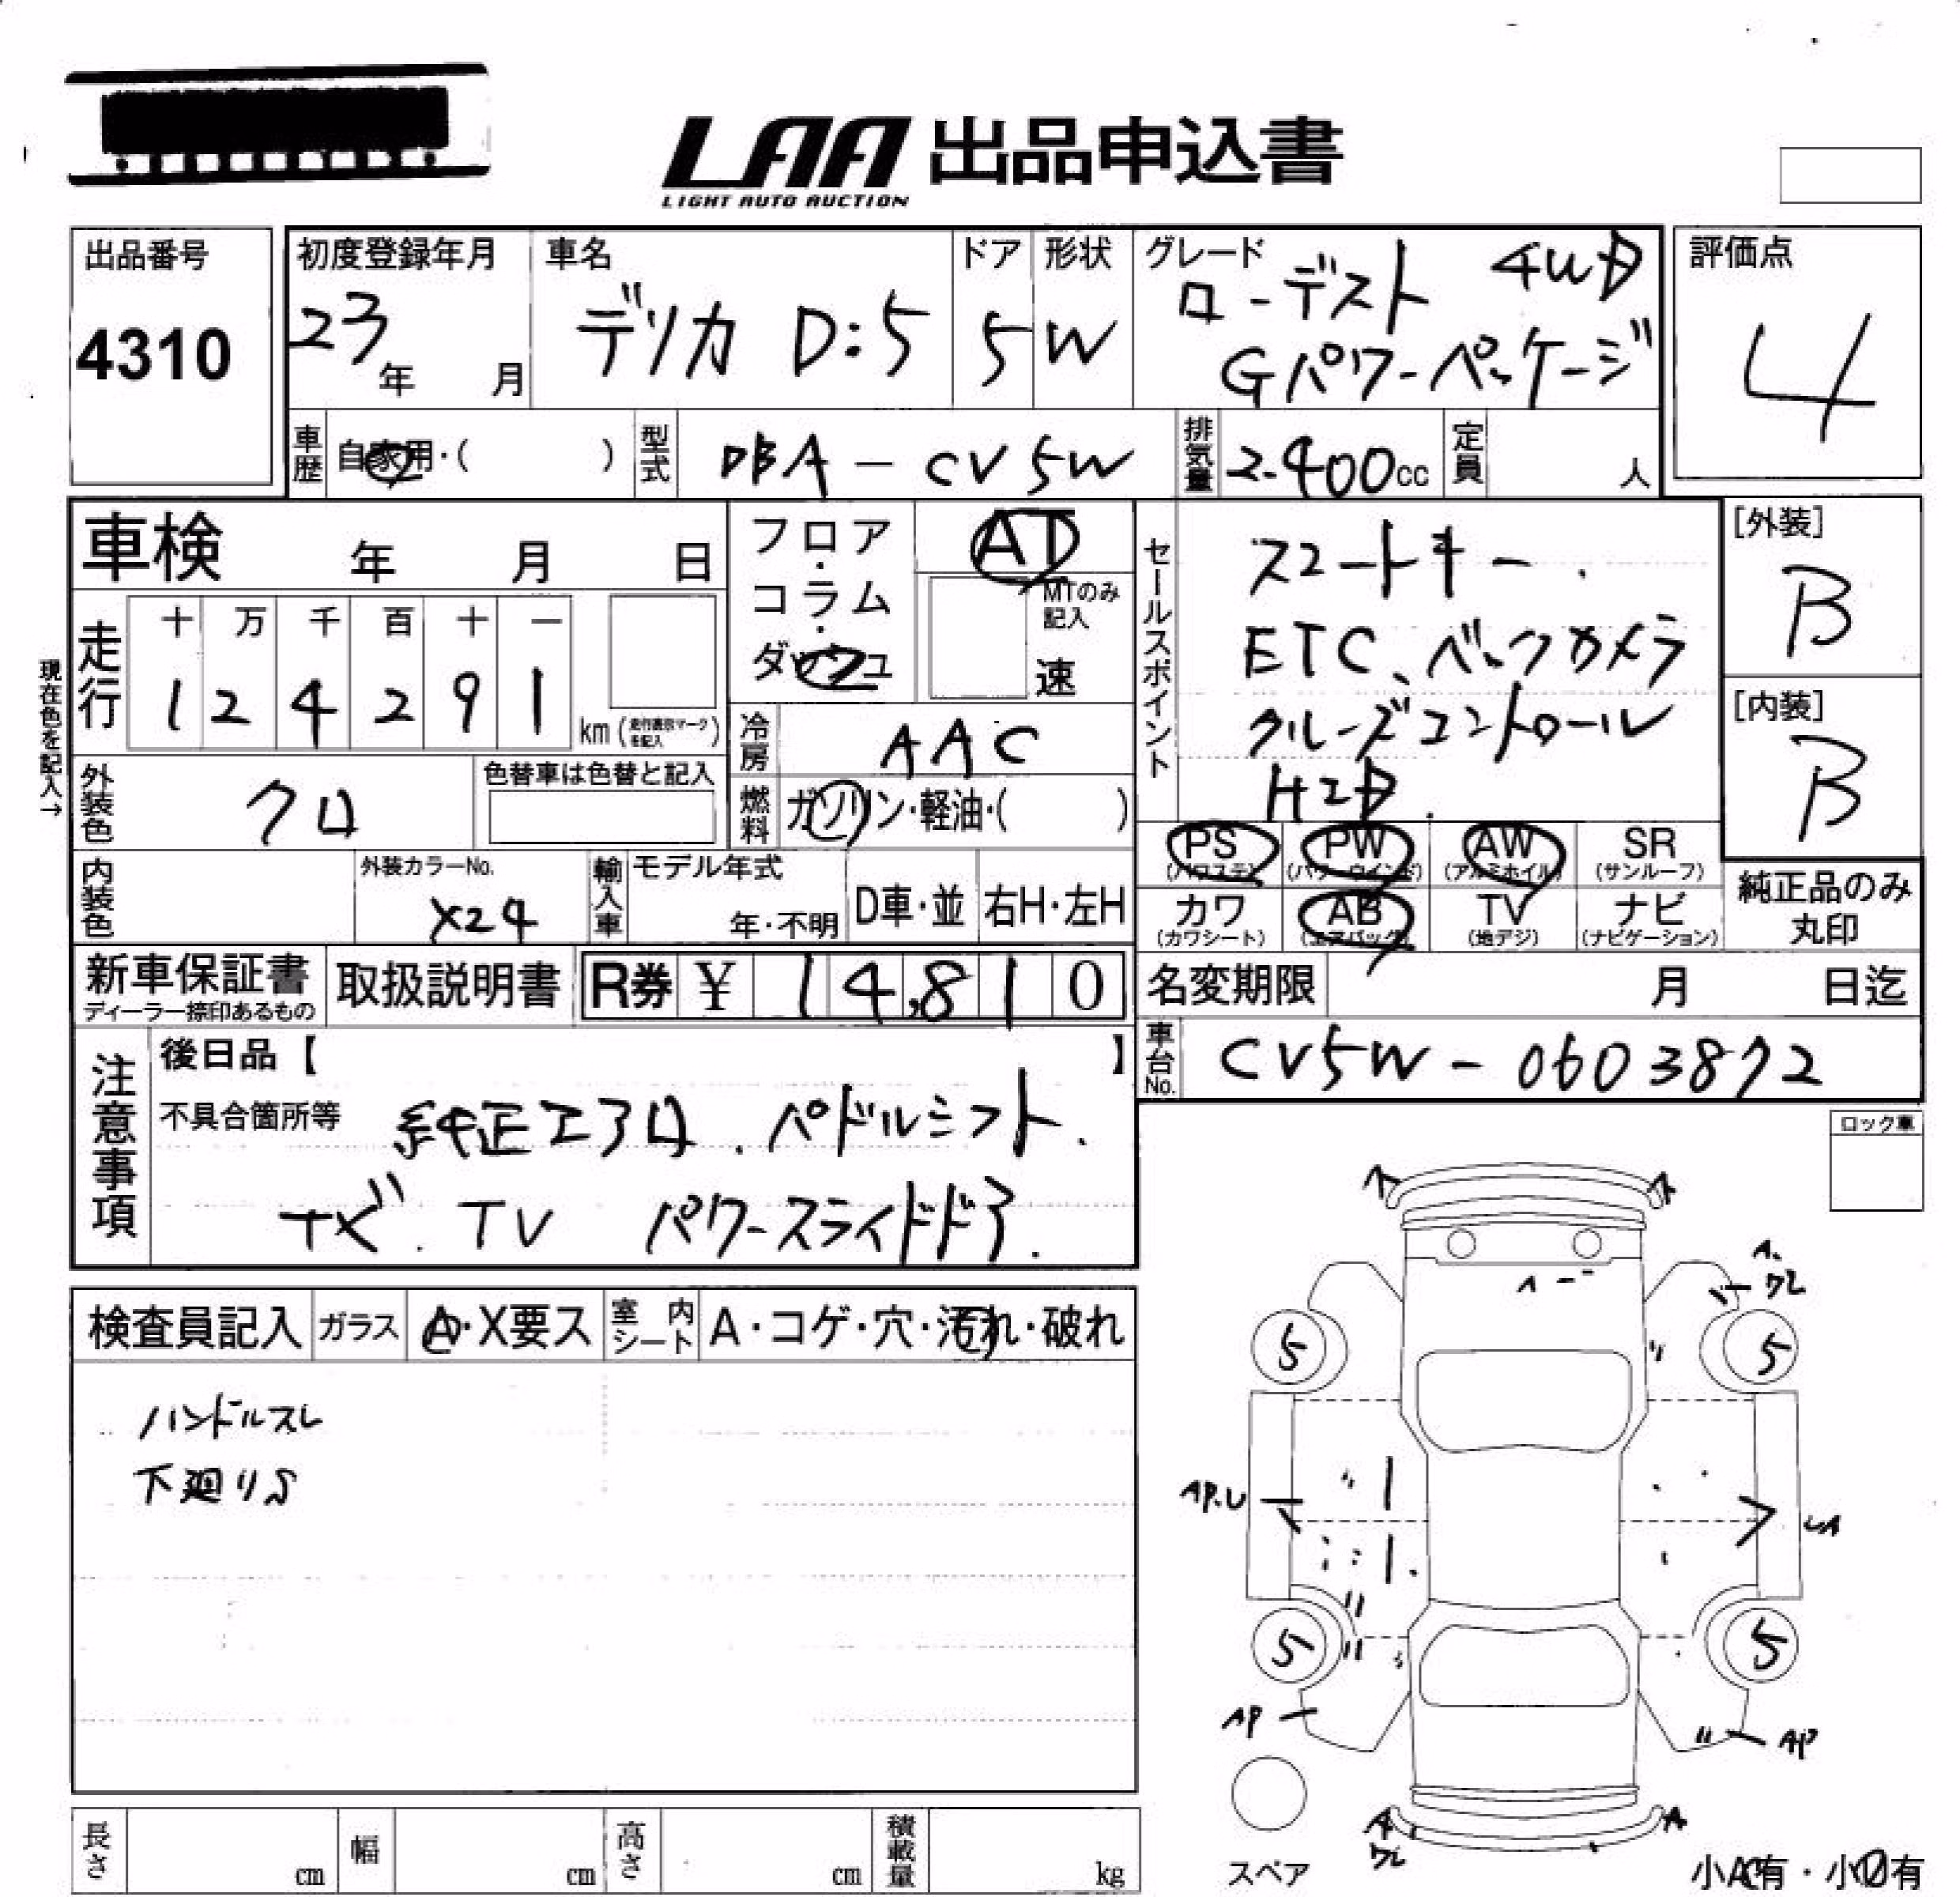 LAA 出品申込書
LIGHT AUTO AUCTION
出品番号
4310
初度登録年月
23年 月
車名
デリカ D:5
ドア
5
形状
W
グレード
ローデスト 4WD
Gパワーパッケージ
評価点
4
車歴 自家用・( )
型式 DBA-CV5W
排気量 2.400cc
定員 人
車検 年 月 日
フロア・コラム・ダッシュ
AT
MTのみ記入
速
セールスポイント
スマートキー.
ETC、バックカメラ
クルーズコントロール
HID.
[外装]
B
[内装]
B
現在色を記入→
走行
十 万 千 百 十 一
1 2 4 2 9 1 km
冷房 AAC
燃料 ガソリン・軽油・( )
外装色 クロ
色替車は色替と記入
内装色
外装カラーNo.
X24
輸入車
モデル年式
年・不明
D車・並
右H・左H
PS (パワステ)
PW (パワーウインド)
AW (アルミホイル)
SR (サンルーフ)
カワ (カワシート)
AB (エアバック)
TV (地デジ)
ナビ (ナビゲーション)
純正品のみ丸印
新車保証書
ディーラー捺印あるもの
取扱説明書
R券 ¥ 14,810
名変期限 月 日迄
車台No. CV5W-0603872
注意事項
後日品【 】
不具合箇所等 純正エアロ. パドルシフト.
ナビ. TV パワースライドドア.
ロック車
検査員記入
ガラス A・X要ス
室内シート A・コゲ・穴・汚れ・破れ
ハンドルスレ
下廻りS
A A
A.
ワレ
5 5
AP.U
LA
5 5
AP
AP
A A
ワレ
スペア
小A有・小U有
長さ cm
幅 cm
高さ cm
積載量 kg